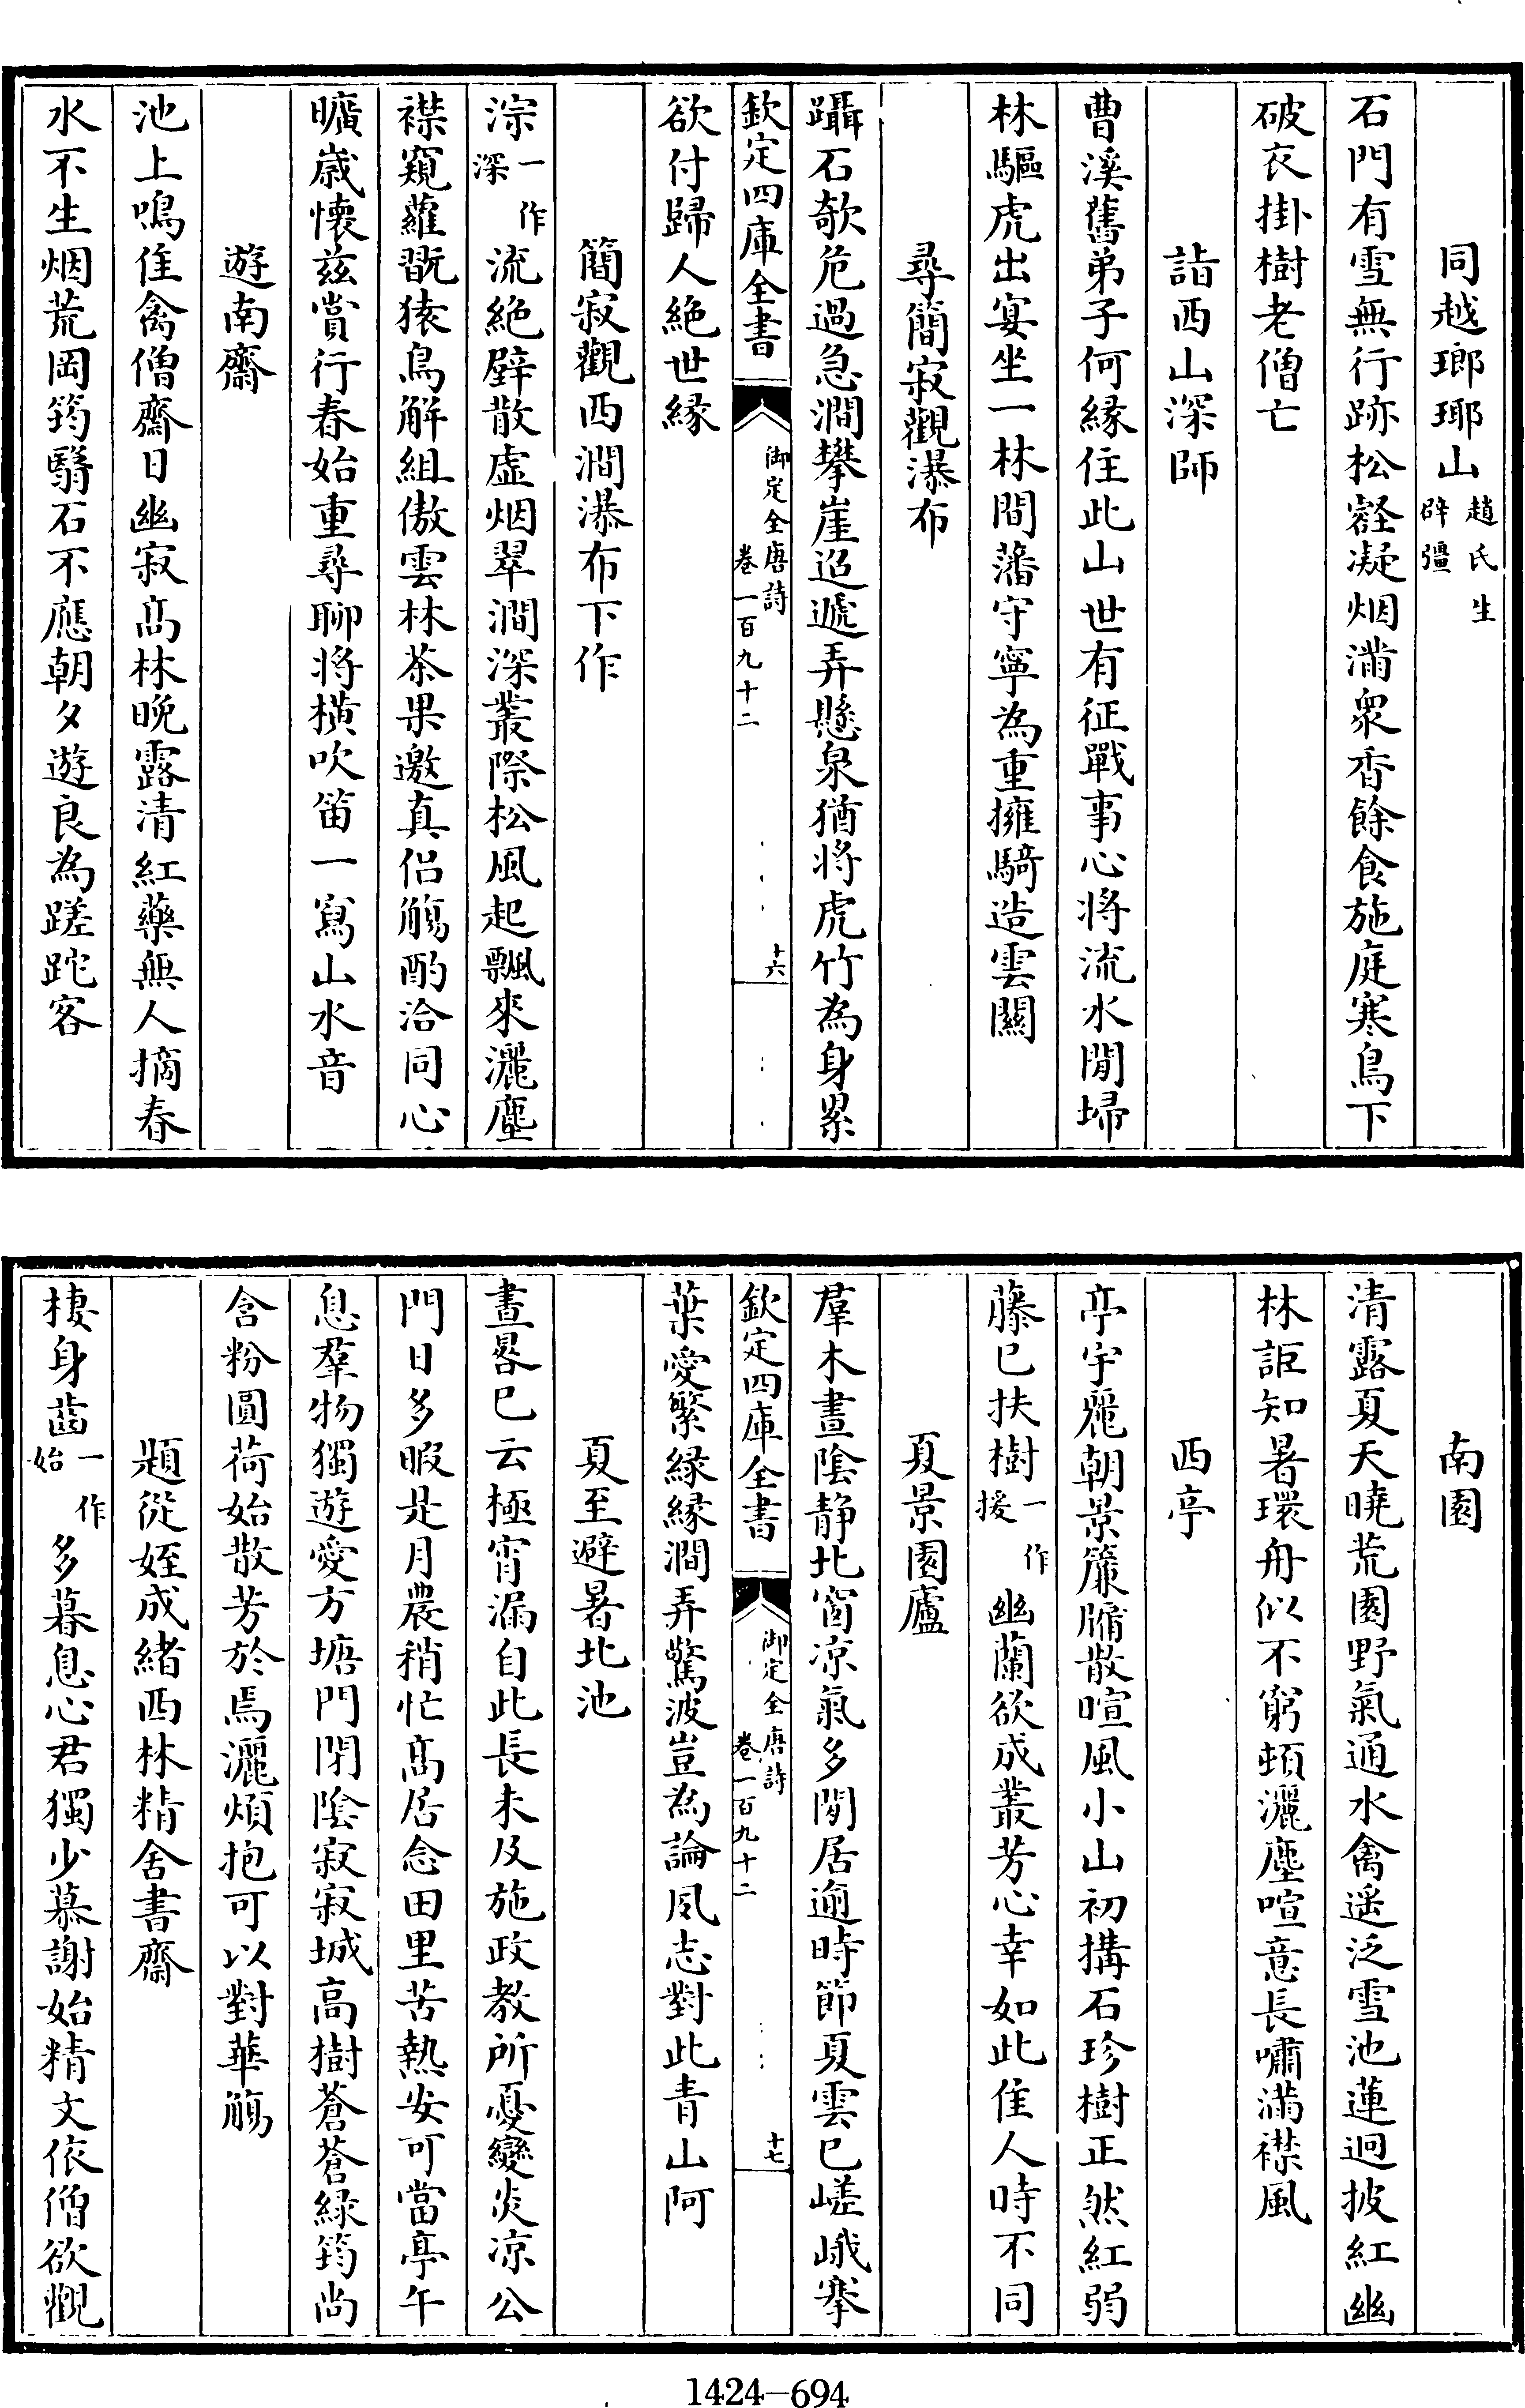 同越瑯琊山趙氏生辟彊
石門有雪無行跡松壑凝烟滿衆香餘食施庭寒鳥下
破衣掛樹老僧亡
詣西山深師
曹溪舊弟子何縁住此山世有征戰事心將流水閒埽
林驅虎出宴坐一林間藩守寧為重擁騎造雲關
尋簡寂觀瀑布
躡石欹危過急澗攀崖迢遞弄懸泉猶將虎竹為身累
欽定四庫全書 御定全唐詩卷一百九十二 十六
欲付歸人絶世縁
簡寂觀西澗瀑布下作
淙一作深流絶壁散虛烟翠澗深叢際松風起飄來灑塵
襟窺蘿翫猿鳥解組傲雲林茶果邀真侶觴酌洽同心
曠歲懷兹賞行春始重尋聊將橫吹笛一寫山水音
遊南齋
池上鳴佳禽僧齋日幽寂高林晚露清紅藥無人摘春
水不生烟荒岡筠翳石不應朝夕遊良為蹉跎客
南園
清露夏天曉荒園野氣通水禽遥泛雪池蓮迥披紅幽
林詎知暑環舟似不窮頓灑塵喧意長嘯滿襟風
西亭
亭宇麗朝景簾牖散喧風小山初搆石珍樹正然紅弱
藤已扶樹一作援幽蘭欲成叢芳心幸如此佳人時不同
夏景園廬
羣木晝陰静北窗凉氣多閒居逾時節夏雲已嵯峨搴
欽定四庫全書 御定全唐詩卷一百九十二 十七
葉愛繁緑縁澗弄驚波豈為論夙志對此青山阿
夏至避暑北池
晝晷已云極宵漏自此長未及施政教所憂變炎凉公
門日多暇是月農稍忙高居念田里苦熱安可當亭午
息羣物獨遊愛方塘門閉陰寂寂城高樹蒼蒼緑筠尚
含粉圓荷始散芳於焉灑煩抱可以對華觴
題從姪成緒西林精舍書齋
棲身齒一作始多暮息心君獨少慕謝始精文依僧欲觀
1424-694